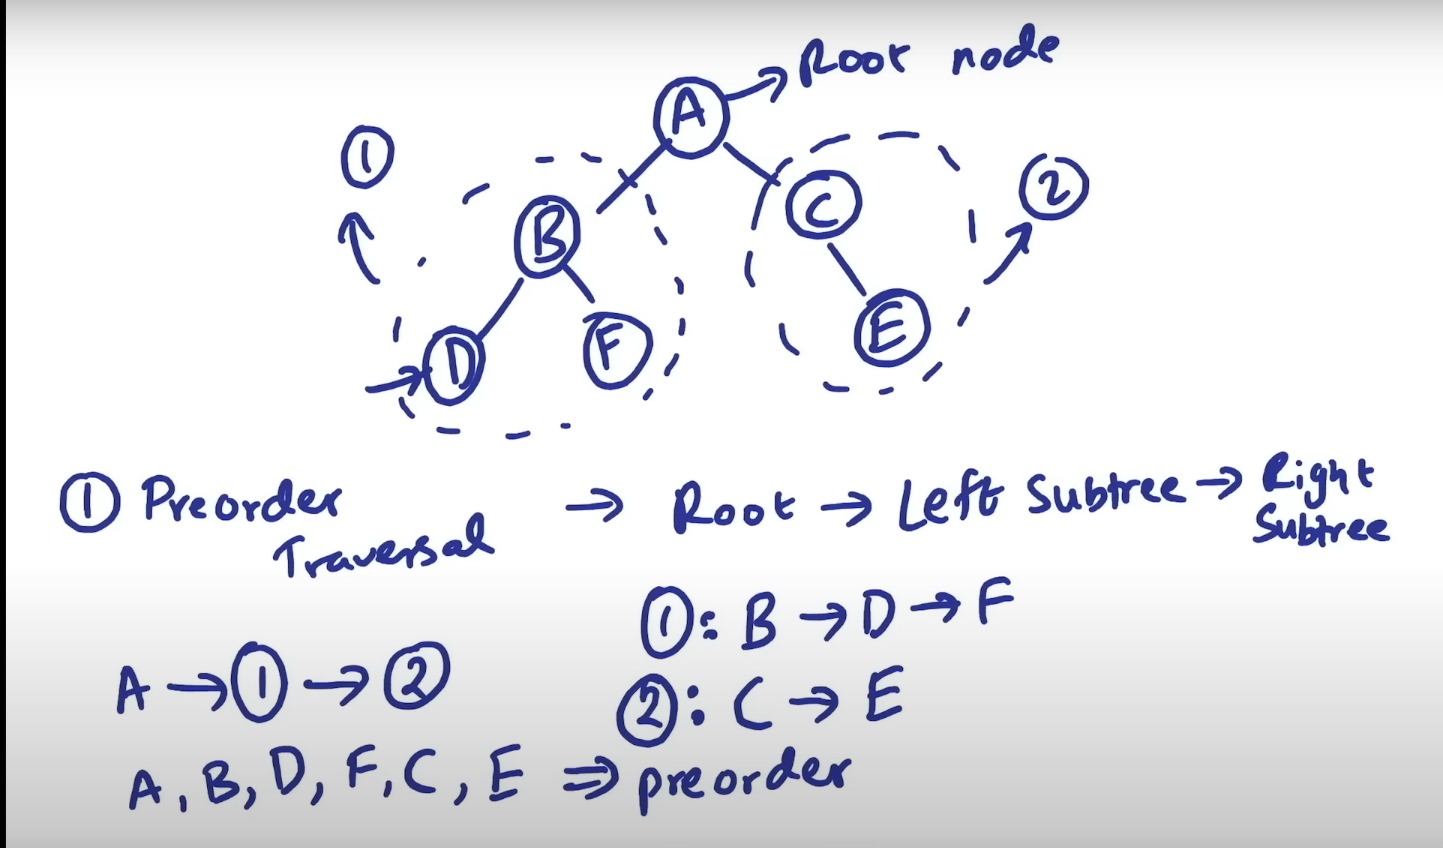 A → Root node
①
B
C
②
D
F
E
① Preorder Traversal → Root → Left Subtree → Right Subtree
①: B → D → F
A → ① → ②
②: C → E
A, B, D, F, C, E ⇒ preorder